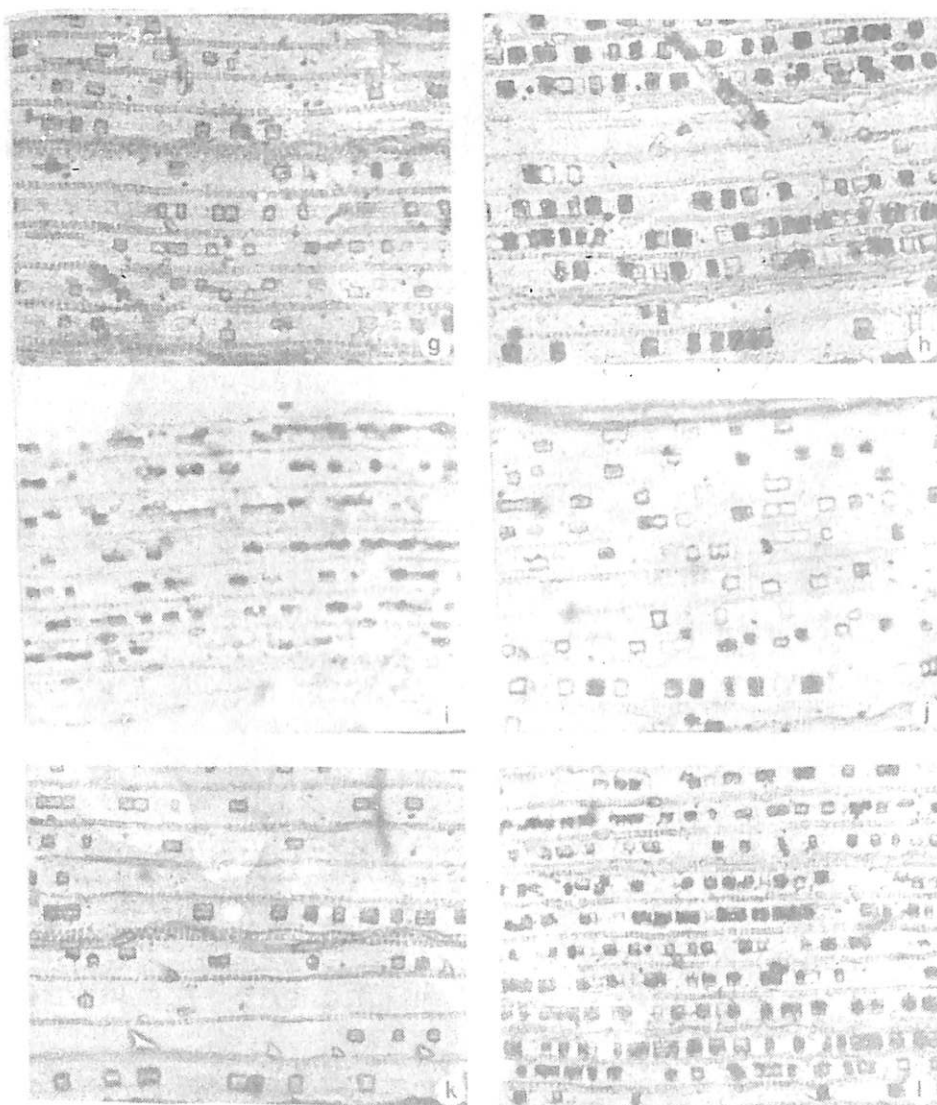 g
h
i
j
k
l